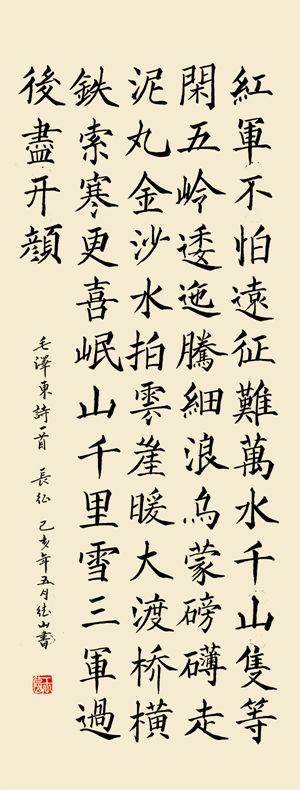 紅軍不怕遠征難萬水千山隻等
閑五岭逶迤騰細浪烏蒙磅礴走
泥丸金沙水拍雲崖暖大渡桥橫
鉄索寒更喜岷山千里雪三軍過
後盡开顔
毛澤東詩一首 長征 己亥年五月山書